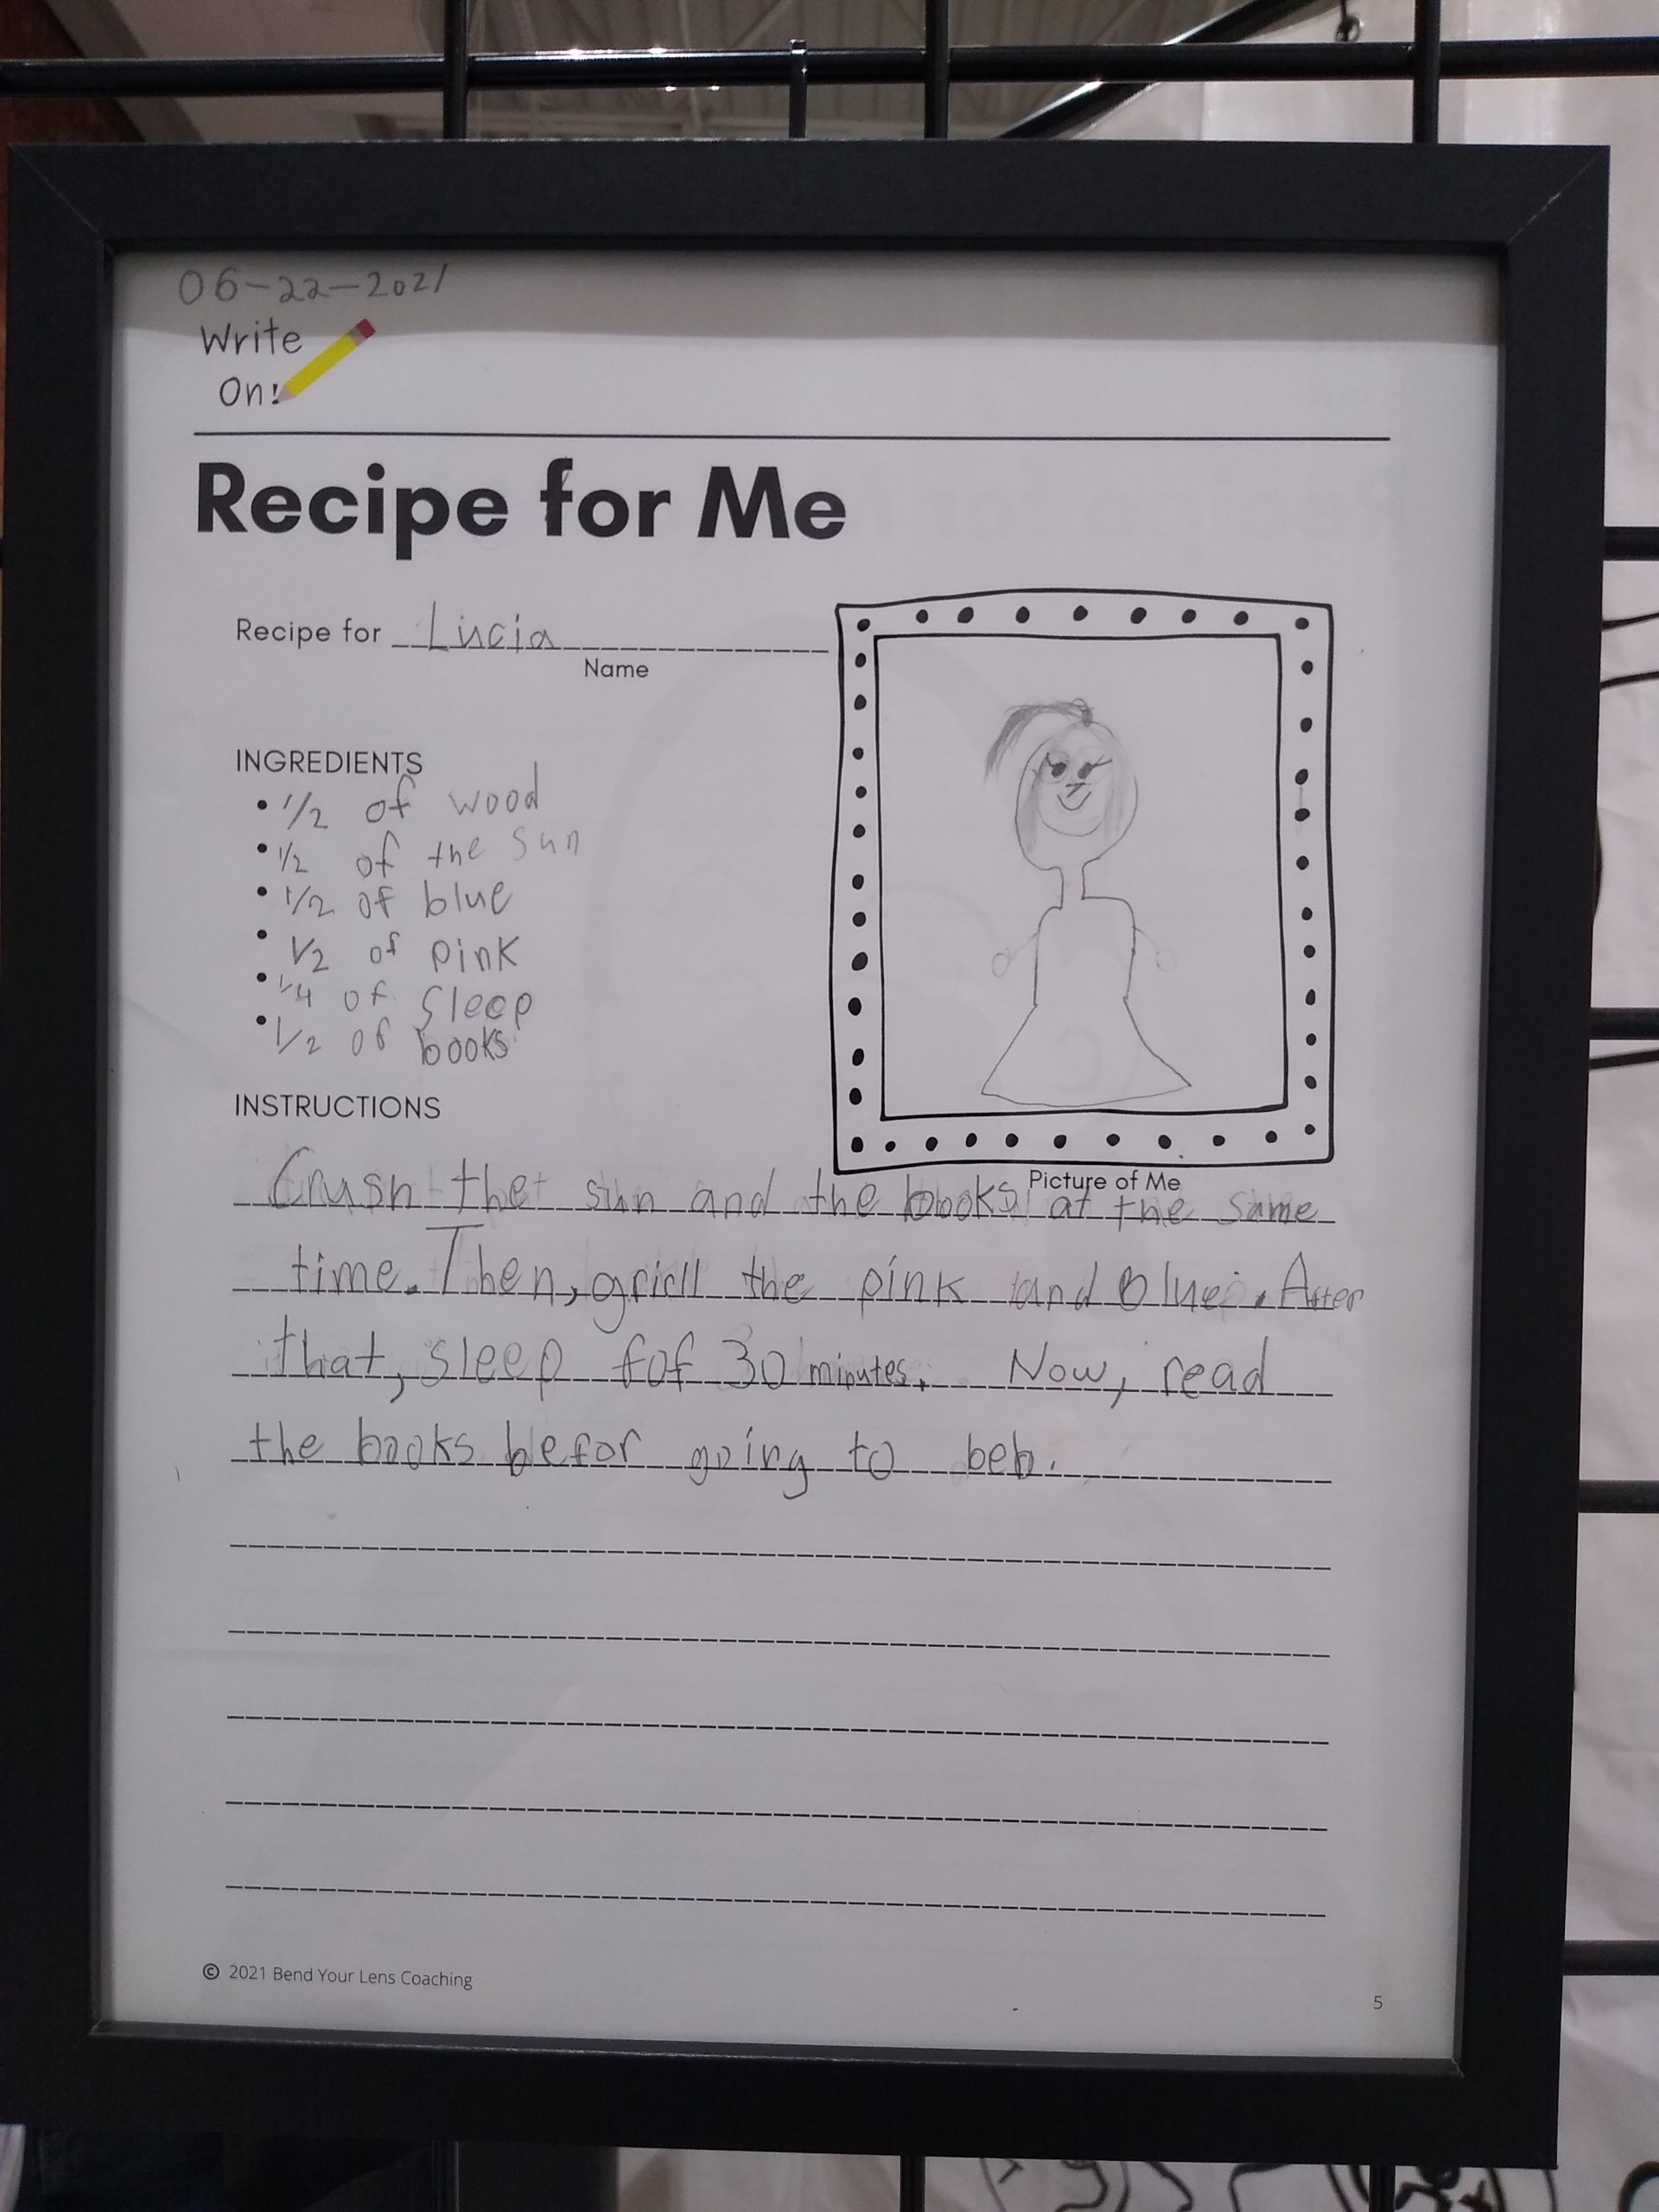 06-22-2021
Write
On!
Recipe for Me
Recipe for Lucia
Name
INGREDIENTS
• 1/2 of wood
• 1/2 of the sun
• 1/2 of blue
• 1/2 of pink
• 1/4 of sleep
• 1/2 of books
INSTRUCTIONS
Picture of Me
Crush the sun and the books at the same
time. Then, grill the pink and blue. After
that, sleep for 30 minutes. Now, read
the books befor going to beb.
© 2021 Bend Your Lens Coaching
5